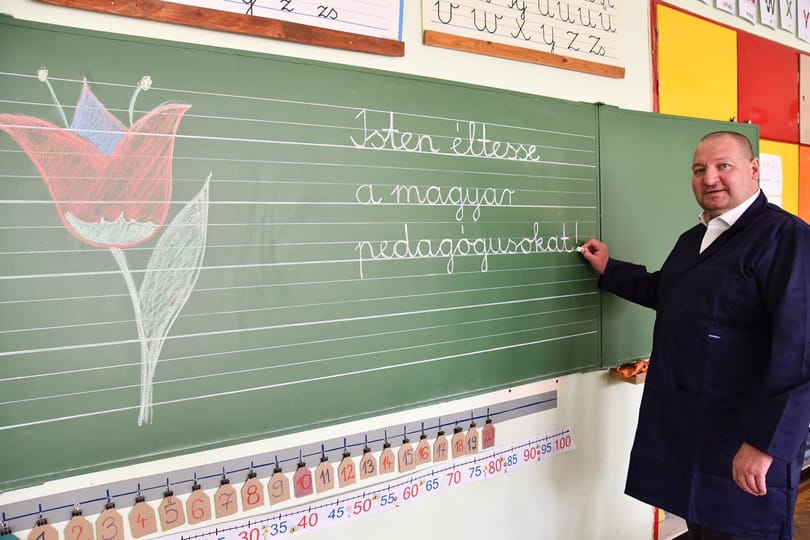 z zs
w x y z zs
Isten éltesse
a magyar
pedagógusokat!
1 2 3 4 5 6 7 8 9 10 11 12 13 14 15 16 17 18 19 20
30 35 40 45 50 55 60 65 70 75 80 85 90 95 100